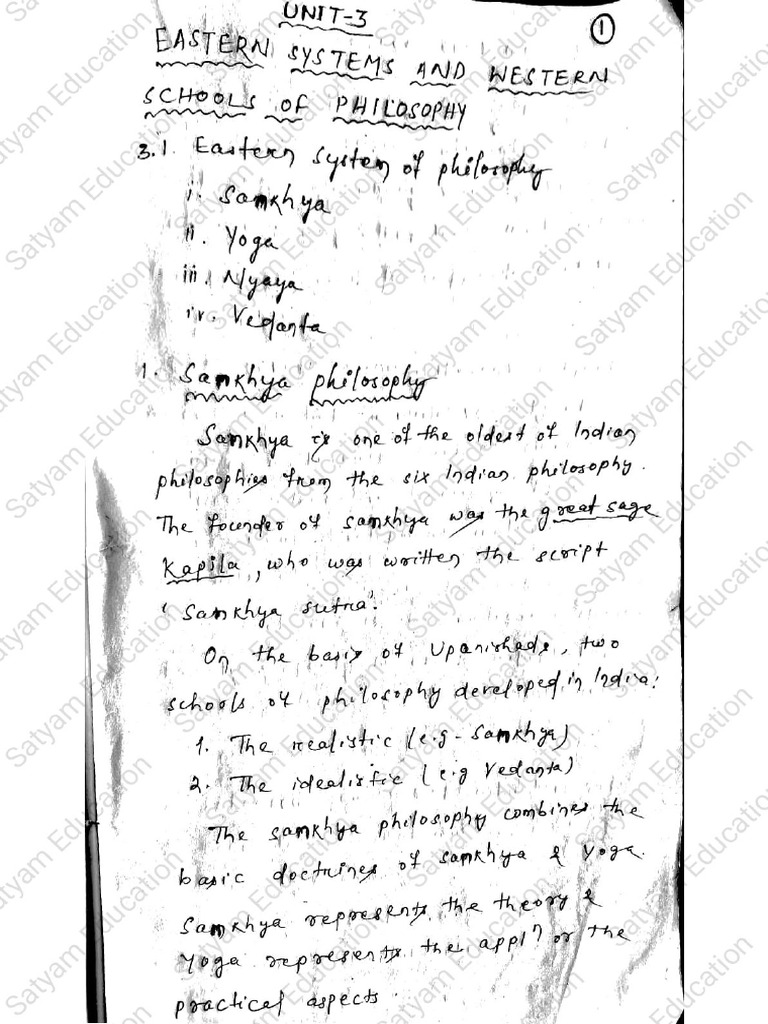 UNIT-3
①
EASTERN SYSTEMS AND WESTERN
SCHOOLS OF PHILOSOPHY
3.1. Eastern System of philosophy
i. Samkhya
ii. Yoga
iii. Nyaya
iv. Vedanta
1. Samkhya philosophy
Samkhya is one of the oldest of Indian
philosophies from the six Indian philosophy.
The founder of samkhya was the great sage
Kapila, who was written the script
'Samkhya sutra'.
On the basis of Upanishads, two
schools of philosophy developed in India:
1. The realistic (e.g - Samkhya)
2. The idealistic (e.g Vedanta)
The samkhya philosophy combines the
basic doctrines of samkhya & Yoga.
Samkhya represents the theory &
Yoga represents the appl? or the
practical aspects.
Satyam Education